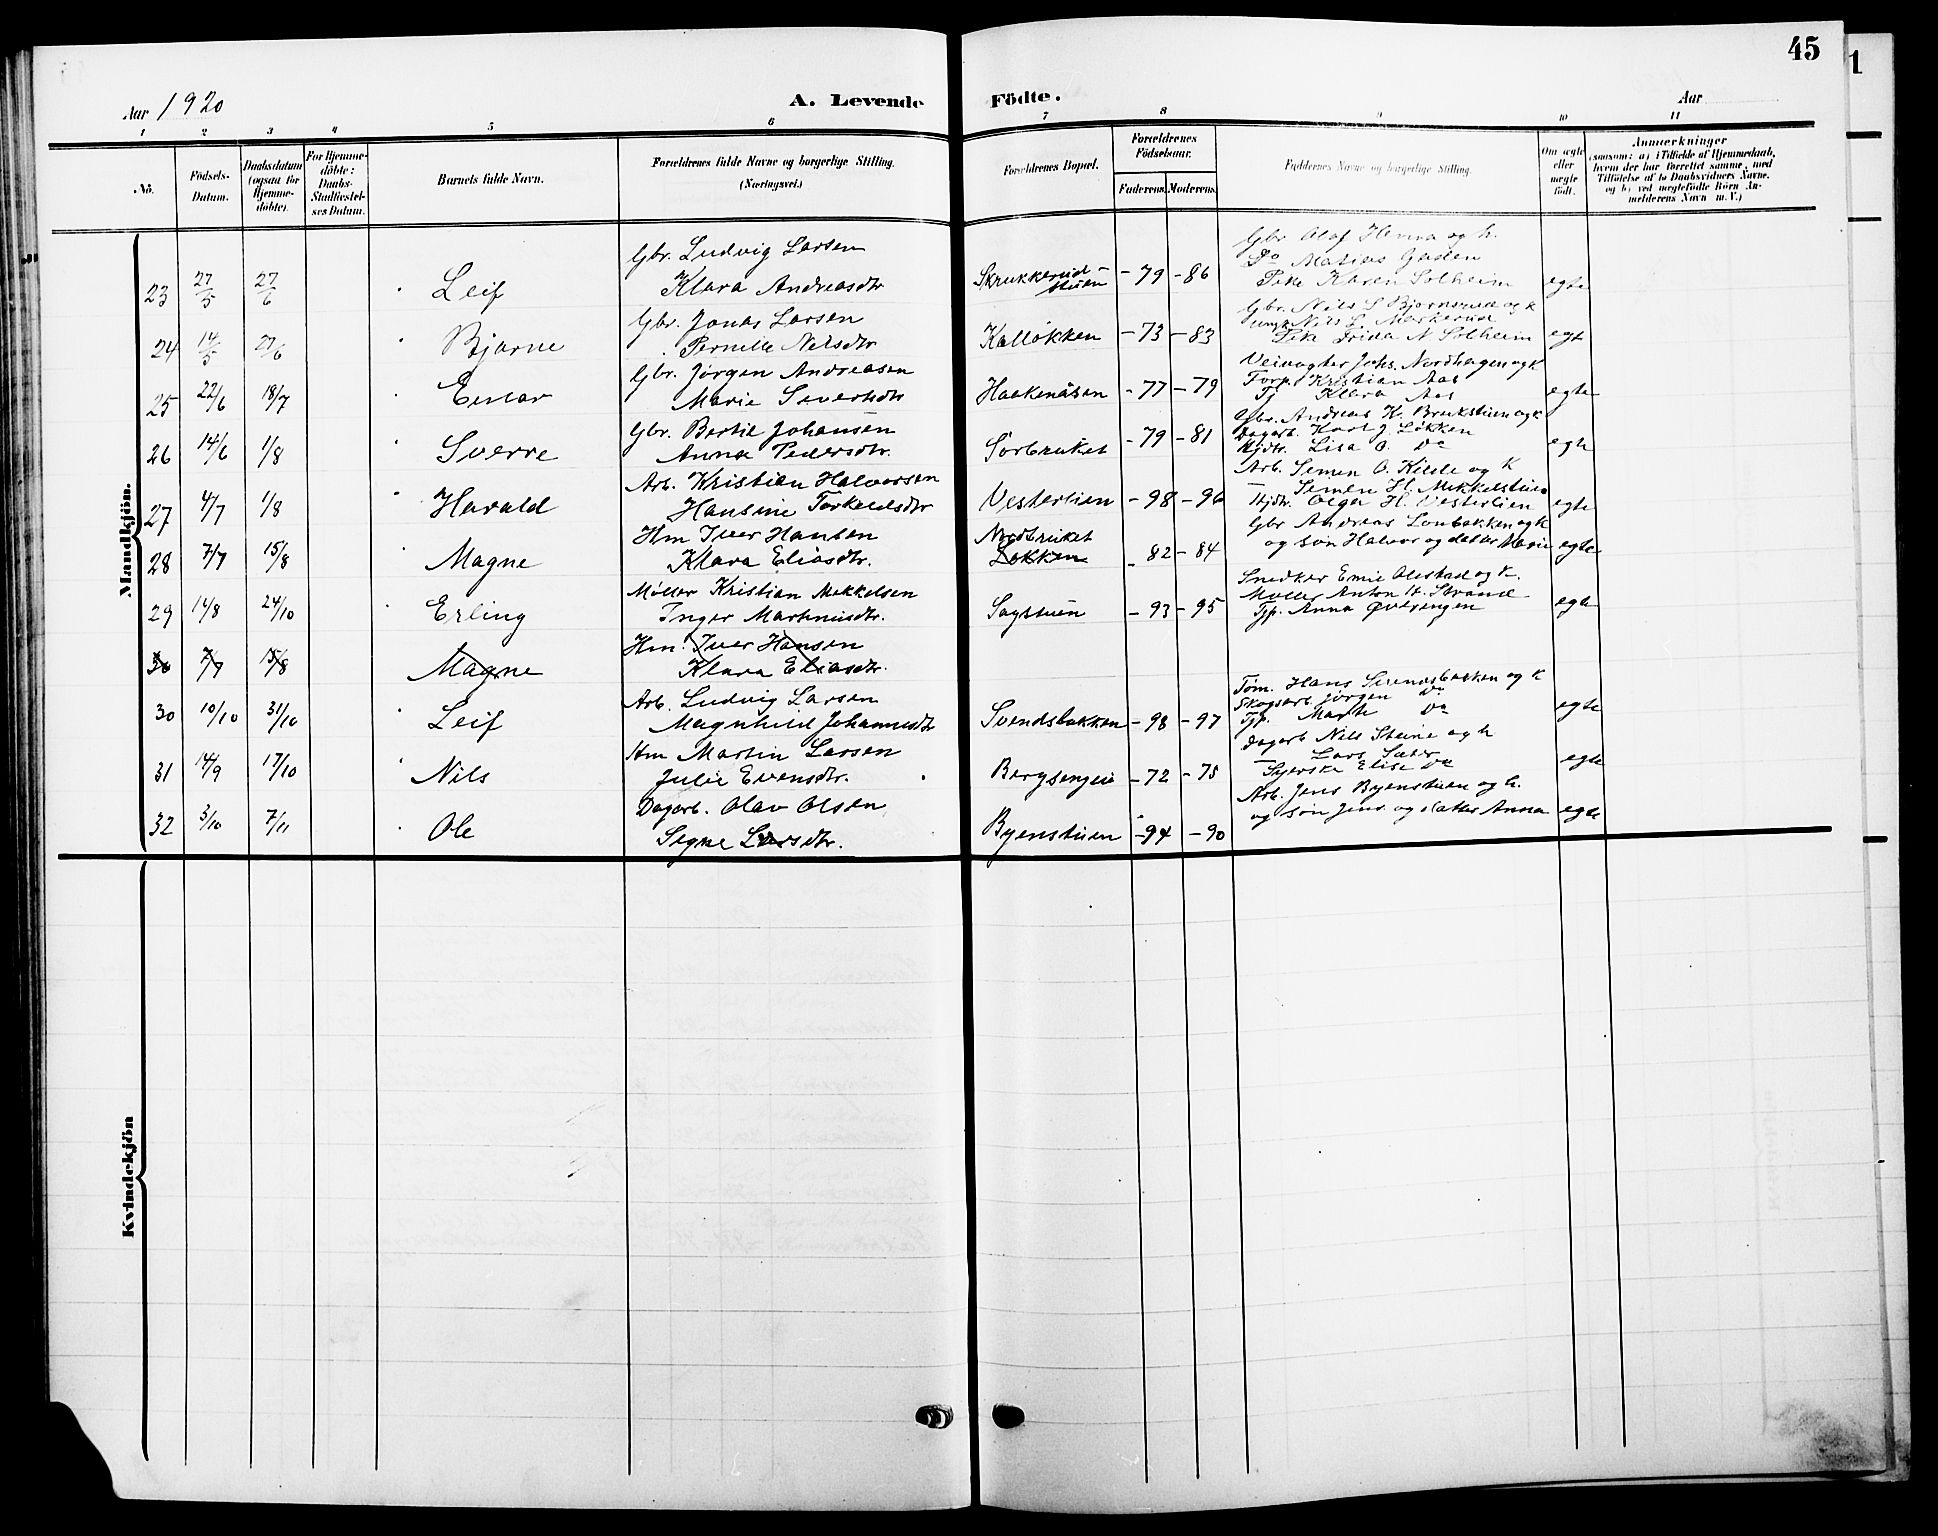 45
1
Aar 1920
A. Levende Födte.
Aar
1 2 3 4 5 6 7 8 9 10 11
No.
Födsels-Datum.
Daabsdatum (ogsaa for Hjemme-döbte).
For Hjemme-döbte: Daabs-Stadfæstel-ses Datum.
Barnets fulde Navn.
Forældrenes fulde Navne og borgerlige Stilling. (Næringsvei.)
Forældrenes Bopæl.
Forældrenes Födselsaar.
Faderens. Moderens.
Faddernes Navne og borgerlige Stilling.
Om ægte eller uægte födt.
Anmærkninger
(saasom: a) i Tilfælde af Hjemmedaab, hvem der har forrettet samme, med Tilföielse af to Daabsvidners Navne, og b) ved uægtefödte Börn An-melderens Navn m. V.)
Mandkjön.
23 27/5 27/6 Leif
Gbr. Ludvig Larsen
Klara Andreasdtr
Skrukkerud-stuen -79 -86
Gbr Olaf Henna og k.
Do Matias Gaden
Pike Karen Solheim
egte
24 14/5 27/6 Bjarne
Gbr. Jonas Larsen
Pernille Nilsdtr
Kalløkken -73 -83
Gbr. Nils S Bjørnsrud og k
Ungk Nils L. Markerud
Pike Frida N Solheim
egte
25 22/6 18/7 Einar
Gbr. Jørgen Andreasen
Marie Sivertsdtr
Haakenåsen -77 -79
Veivogter Johs. Nordhagen og k
Forp. Kristian Aas
Tj Klara Aas
egte
26 14/6 1/8 Sverre
Gbr. Bertil Johansen
Anna Pedersdtr.
Sørbruket -79 -81
Gbr. Andreas K. Brukstuen og k
Dagarb. Karl J. Løkken
Hjdtr. Lisa O. Do
egte
27 4/7 1/8 Harald
Arb. Kristian Halvorsen
Hansine Torkeldsdtr
Vesterlien -98 -96
Arb. Simen O. Kilde og k
— Simen H. Mikkelstuen
Hjdtr. Olga H. Vesterlien
egte
28 7/7 15/8 Magne
Hm Iver Hansen
Klara Eliasdtr.
Nordbruket
Løkken -82 -84
Gbr Andreas Lonbakken og k
og søn Halvor og datter Marie
egte
29 14/8 24/10 Erling
Møller Kristian Mikkelsen
Inger Martinusdtr.
Sagstuen -93 -95
Snedker Emil Olestad og k.
Møller Anton H. Strand
Tjp. Anna Øversengen
egte
30 7/7 15/8 Magne
Hm. Iver Hansen
Klara Eliasdtr.
30 10/10 31/10 Leif
Arb. Ludvig Larsen
Magnhild Johannesdtr
Svendsbakken -98 -97
Tøm. Hans Svendsbakken og k
Skogsarb Jørgen Do
Tjp. Marte Do
egte
31 14/9 17/10 Nils
Hm Martin Larsen
Julie Evensdtr.
Bergsengeie -72 -75
Dagarb Nils Steine og k
— Lars Sæter
Syerske Elise Do
egte
32 3/10 7/11 Ole
Dagarb. Olav Olsen
Signe Larsdtr.
Byenstuen -94 -90
Arb. Jens Byenstuen og k.
og søn Jens og datter Anna
egte
Kvindekjön